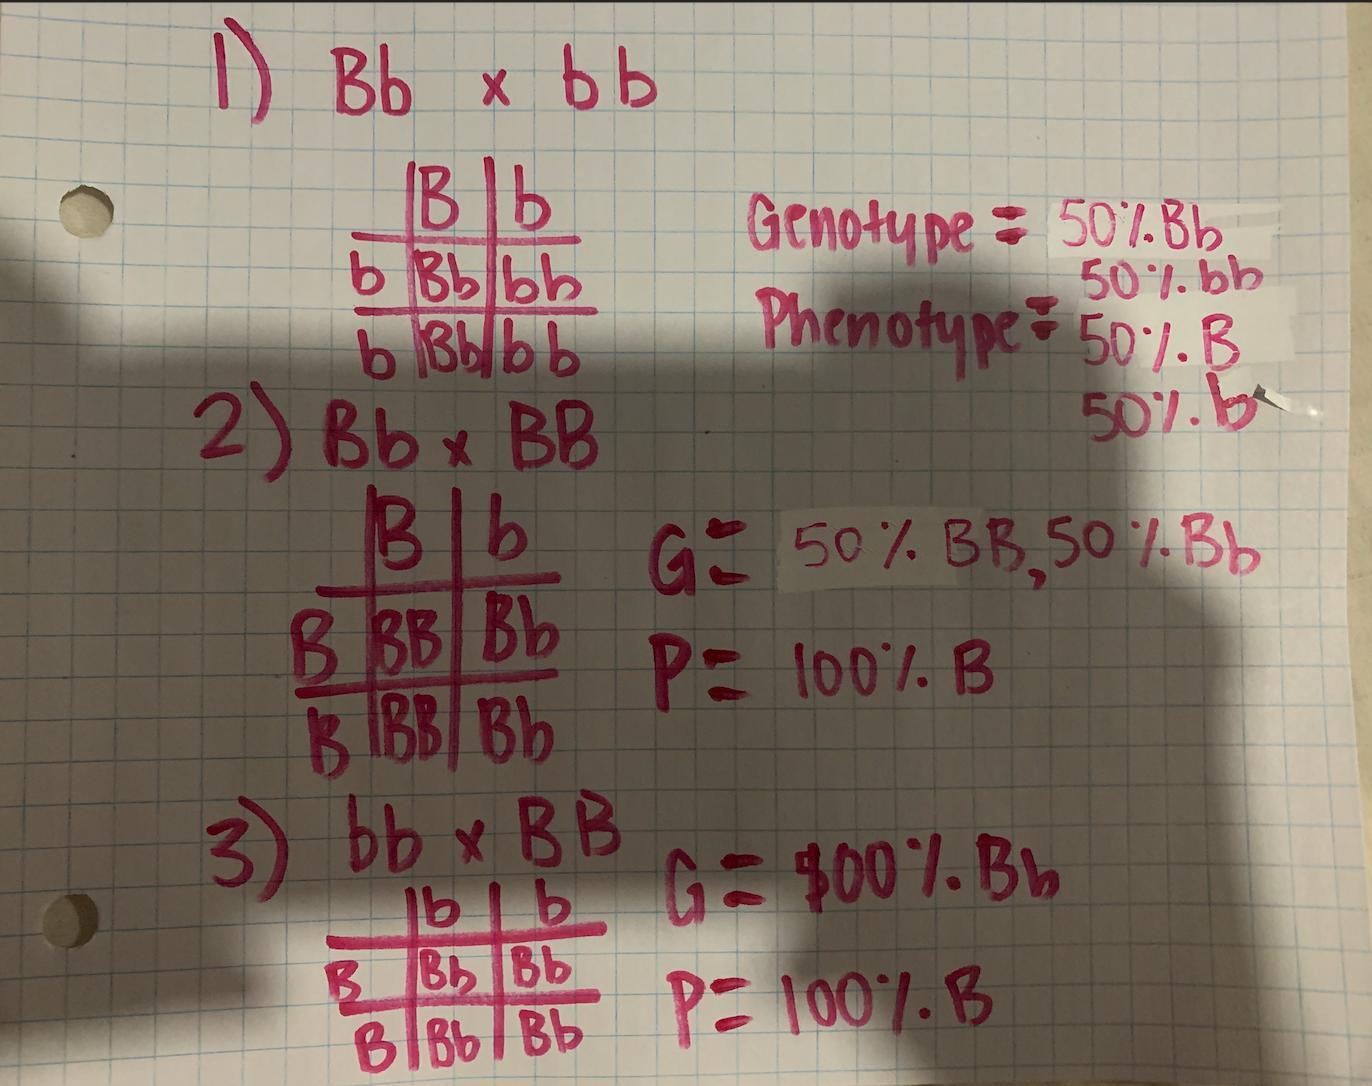 1) Bb x bb
B b
b Bb bb
b Bb bb
Genotype = 50% Bb
50% bb
Phenotype = 50% B
50% b
2) Bb x BB
B b
B BB Bb
B BB Bb
G = 50% BB, 50% Bb
P = 100% B
3) bb x BB
b b
B Bb Bb
B Bb Bb
G = 100% Bb
P = 100% B